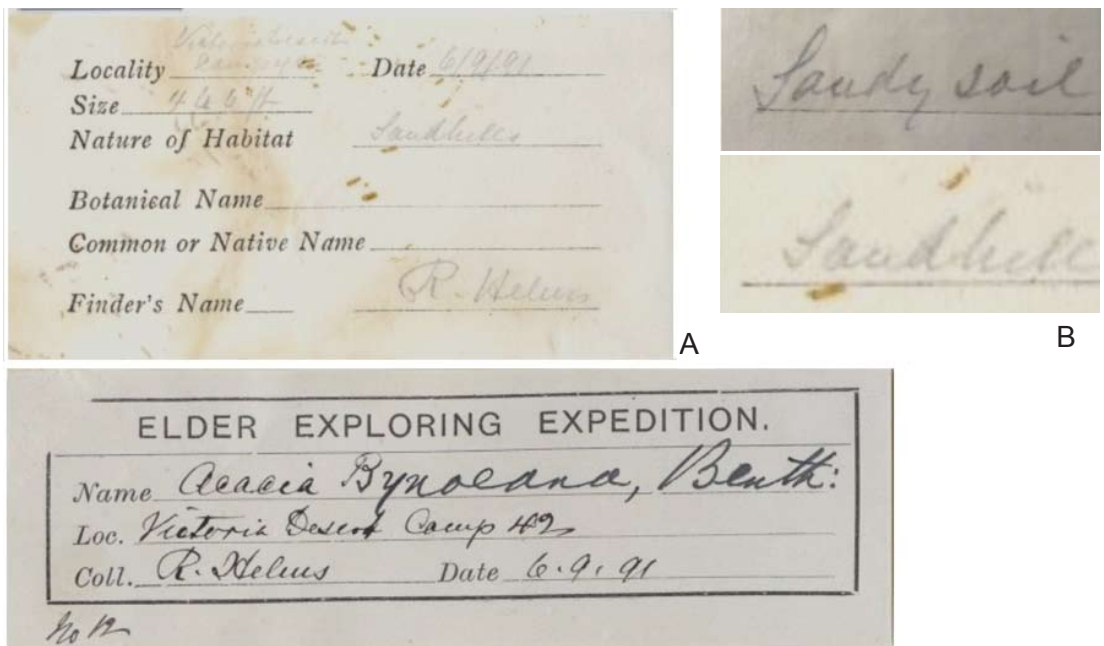 Victoria Desert
Locality Camp Date 6/9/91
Size 4 to 6 ft
Nature of Habitat Sandhills
Botanical Name
Common or Native Name
Finder's Name R. Helms
A
Sandy soil
Sandhill
B
ELDER EXPLORING EXPEDITION.
Name Acacia Bynoeana, Benth:
Loc. Victoria Desert Camp 42
Coll. R. Helms Date 6.9.91
No 12